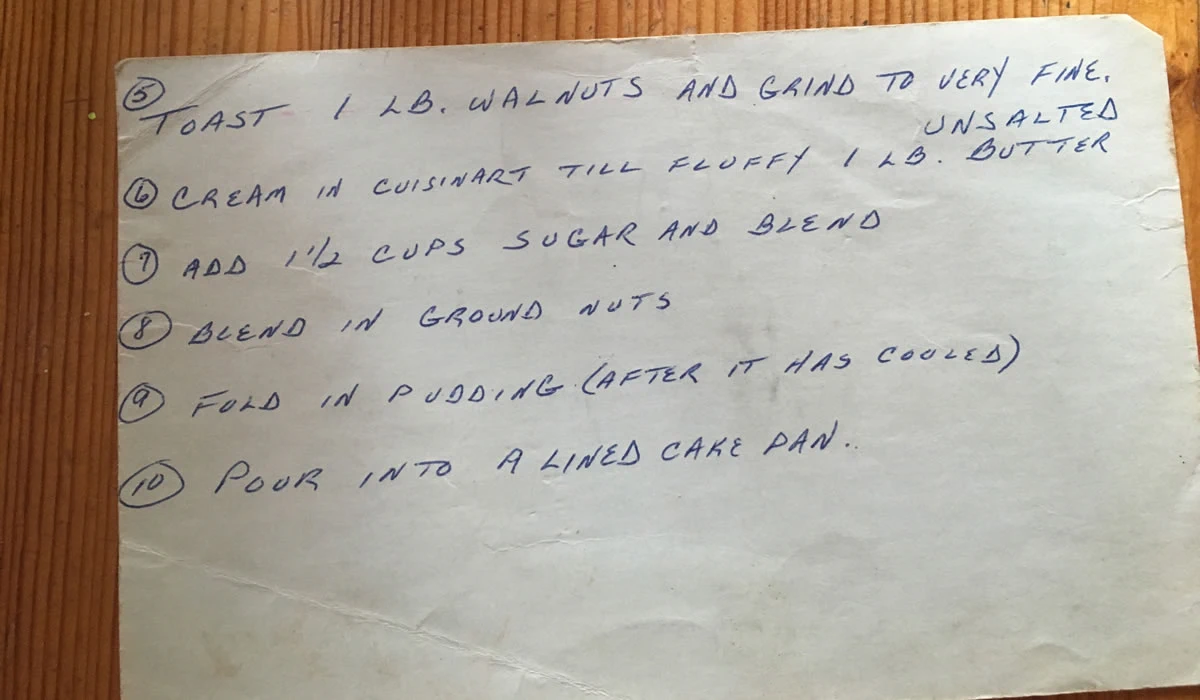 ⑤
TOAST 1 LB. WALNUTS AND GRIND TO VERY FINE.
UNSALTED
⑥ CREAM IN CUISINART TILL FLUFFY 1 LB. BUTTER
⑦ ADD 1 1/2 CUPS SUGAR AND BLEND
⑧ BLEND IN GROUND NUTS
⑨ FOLD IN PUDDING (AFTER IT HAS COOLED)
⑩ POUR INTO A LINED CAKE PAN..